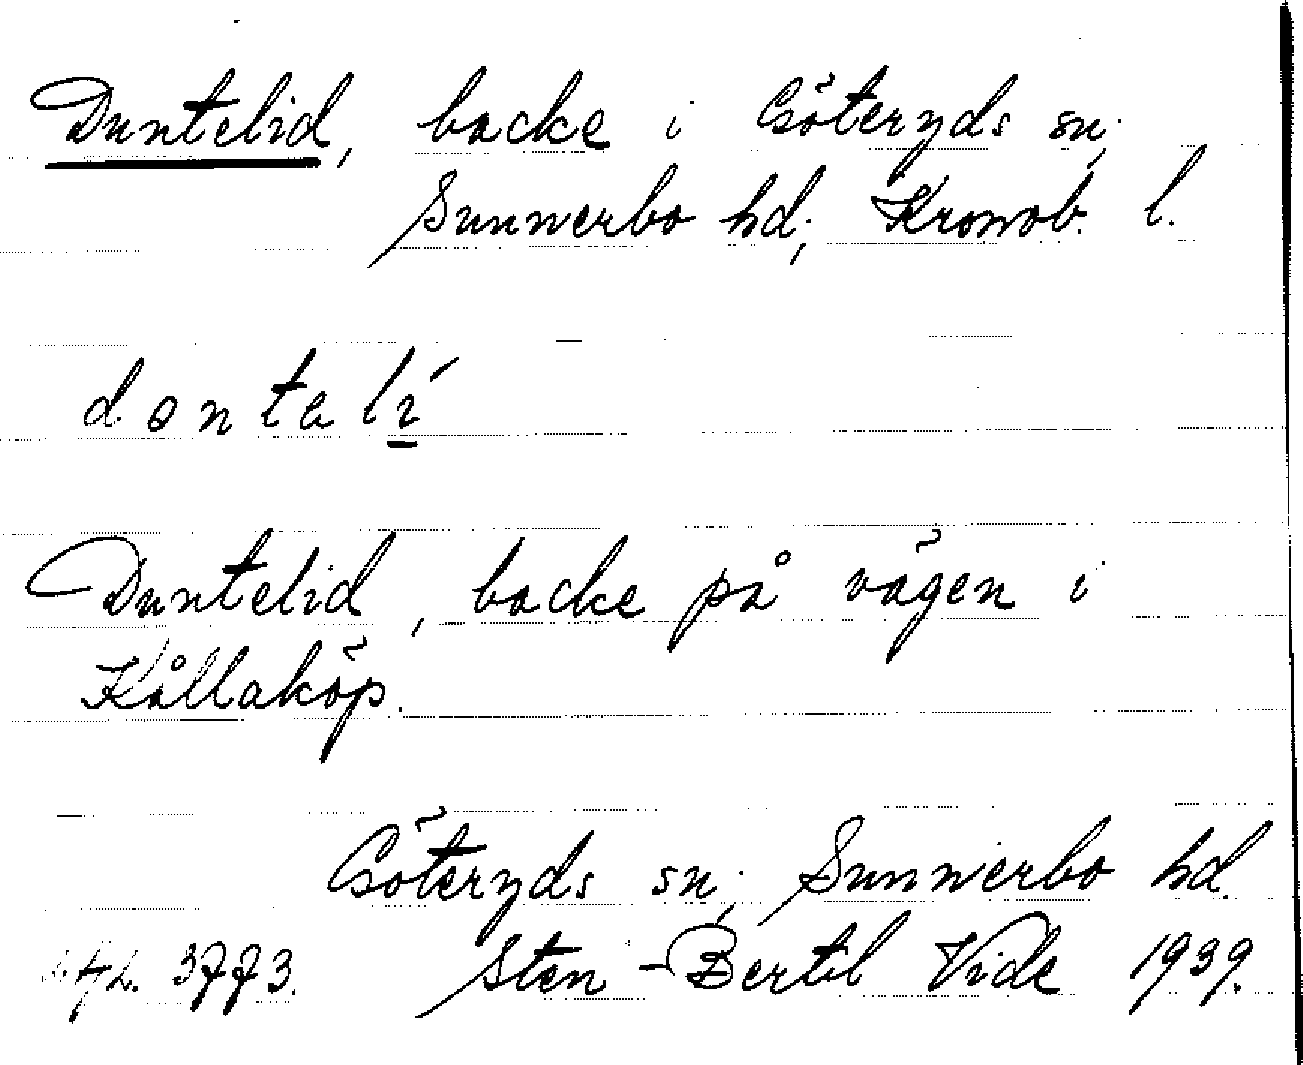 Duntelid, backe i Göteryds sn;
Sunnerbo hd; Kronob. l.
dontalí
Duntelid, backe på vägen i
Kållaköp.
Göteryds sn; Sunnerbo hd.
3773. Sten-Bertil Vide 1939.